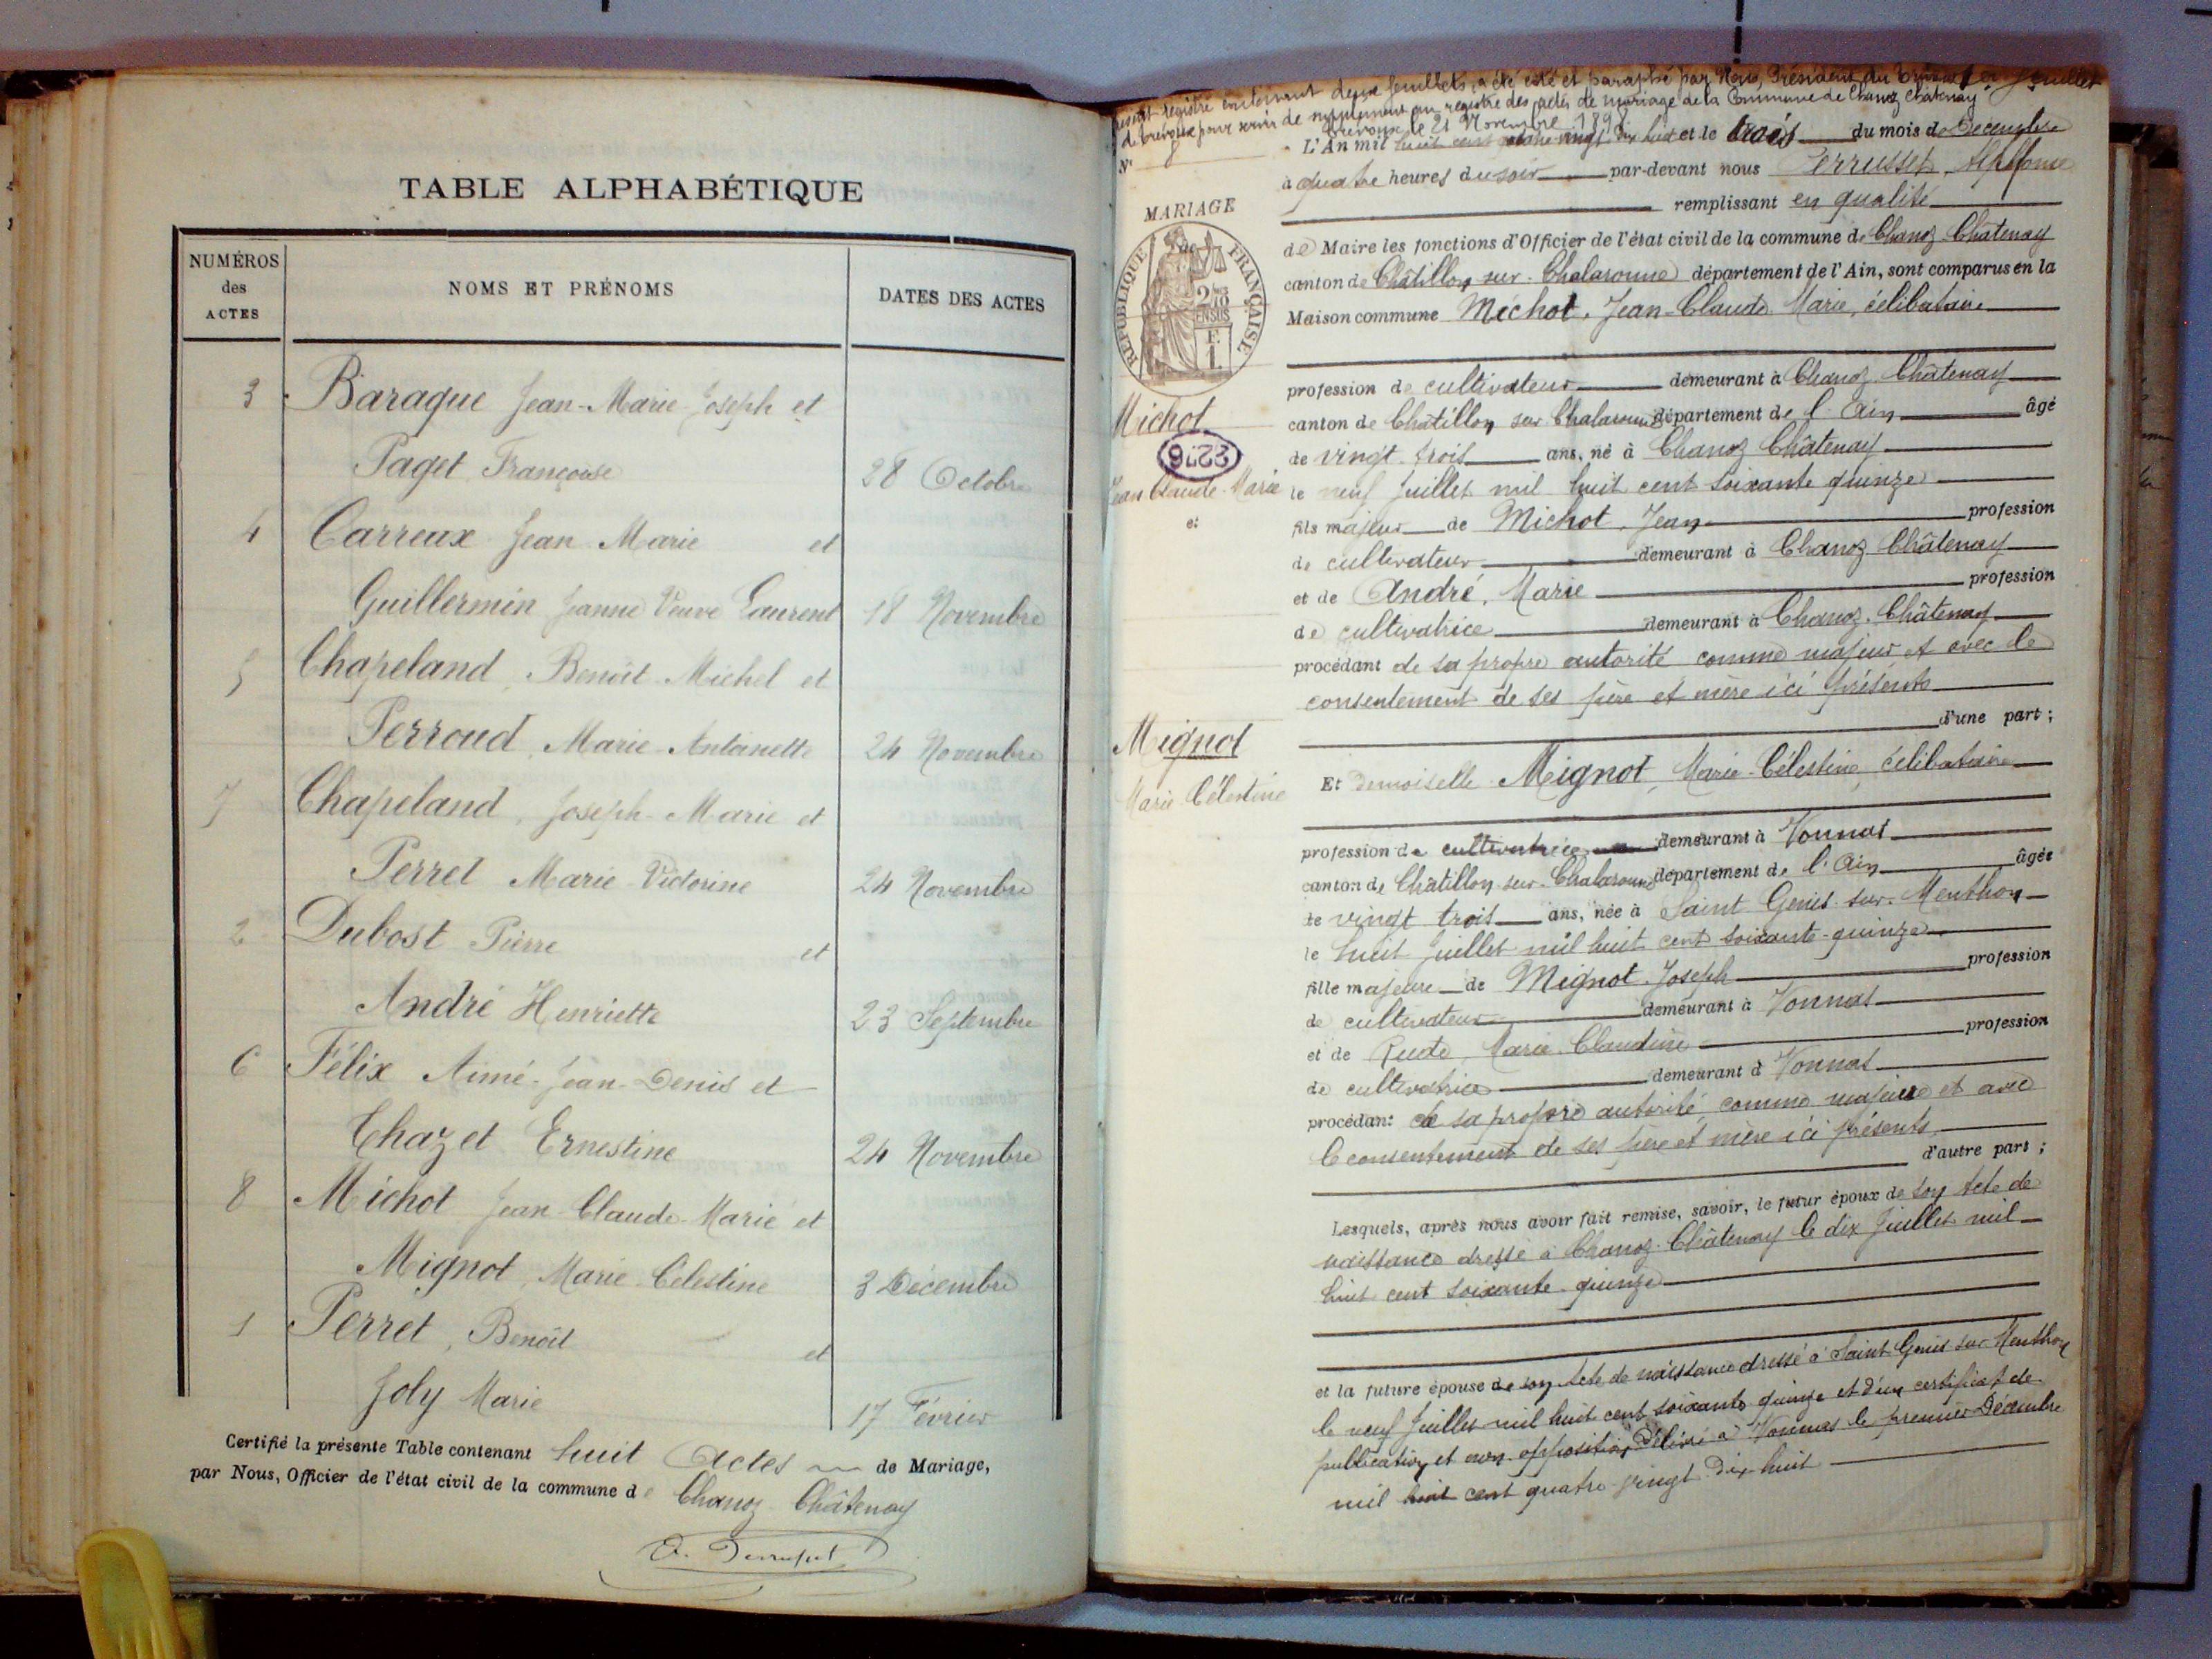 TABLE ALPHABÉTIQUE
NUMÉROS
des
ACTES
NOMS ET PRÉNOMS
DATES DES ACTES
3 Baraque Jean-Marie-Joseph et
Paget Françoise 28 Octobre
4 Carreaux Jean Marie et
Guillermin Jeanne Veuve Laurent 18 Novembre
5 Chapeland, Benoît Michel et
Perroud, Marie-Antoinette 24 Novembre
7 Chapeland, Joseph-Marie et
Perret Marie-Victorine 24 Novembre
2 Dubost Pierre et
André Henriette 23 Septembre
6 Félix Aimé-Jean-Denis et
Chazet Ernestine 24 Novembre
8 Michot Jean-Claude-Marie et
Mignot, Marie-Célestine 3 Décembre
1 Perret, Benoît et
Joly Marie 17 Février
Certifié la présente Table contenant huit Actes de Mariage,
par Nous, Officier de l'état civil de la commune de Chanoz-Châtenay
registre contenant deux feuillets, a été coté et paraphé par Nous, Président du 1er feuillet
de Trévoux pour servir de supplément au registre des actes de mariage de la Commune de Chanoz Châtenay
Trévoux le 21 Novembre 1898
N° 8
MARIAGE
RÉPUBLIQUE FRANÇAISE
Michot
2276
Jean Claude-Marie
et
Mignot
Marie-Célestine
L'An mil huit cent quatre vingt dix huit et le trois du mois de Décembre
à quatre heures du soir par-devant nous Perrusset, Alphonse
remplissant en qualité
de Maire les fonctions d'Officier de l'état civil de la commune de Chanoz-Châtenay
canton de Châtillon-sur-Chalaronne département de l'Ain, sont comparus en la
Maison commune Michot, Jean-Claude Marie, célibataire
profession de cultivateur demeurant à Chanoz-Châtenay
canton de Châtillon sur Chalaronne département de l'Ain âgé
de vingt-trois ans, né à Chanoz Châtenay
le neuf Juillet mil huit cent soixante quinze
fils majeur de Michot, Jean profession
de cultivateur demeurant à Chanoz-Châtenay
et de André, Marie profession
de cultivatrice demeurant à Chanoz-Châtenay
procédant de sa propre autorité comme majeur et avec le
consentement de ses père et mère ici présents
d'une part;
Et demoiselle Mignot, Marie-Célestine, célibataire
profession de cultivatrice demeurant à Vonnas
canton de Châtillon-sur-Chalaronne département de l'Ain âgée
de vingt trois ans, née à Saint Genis-sur-Menthon
le huit Juillet mil huit cent soixante-quinze
fille majeure de Mignot Joseph profession
de cultivateur demeurant à Vonnas
et de Marie-Claudine profession
de cultivatrice demeurant à Vonnas
procédant de sa propre autorité comme majeure et avec
le consentement de ses père et mère ici présents
d'autre part;
Lesquels, après nous avoir fait remise, savoir, le futur époux de son Acte de
naissance dressé à Chanoz-Châtenay le dix Juillet mil
huit cent soixante-quinze
et la future épouse de son Acte de naissance dressé à Saint Genis-sur-Menthon
le neuf Juillet mil huit cent soixante quinze et d'un certificat de
publication et non-opposition délivré à Vonnas le premier Décembre
mil huit cent quatre-vingt-dix huit